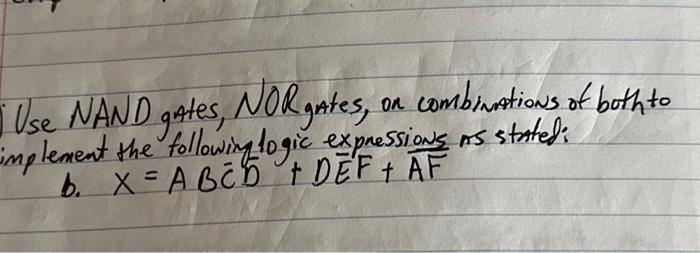 Use NAND gates, NOR gates, or combinations of both to
implement the following logic expressions as stated:
b. X = A B C̅ D̅ + D E̅ F + A̅F̅